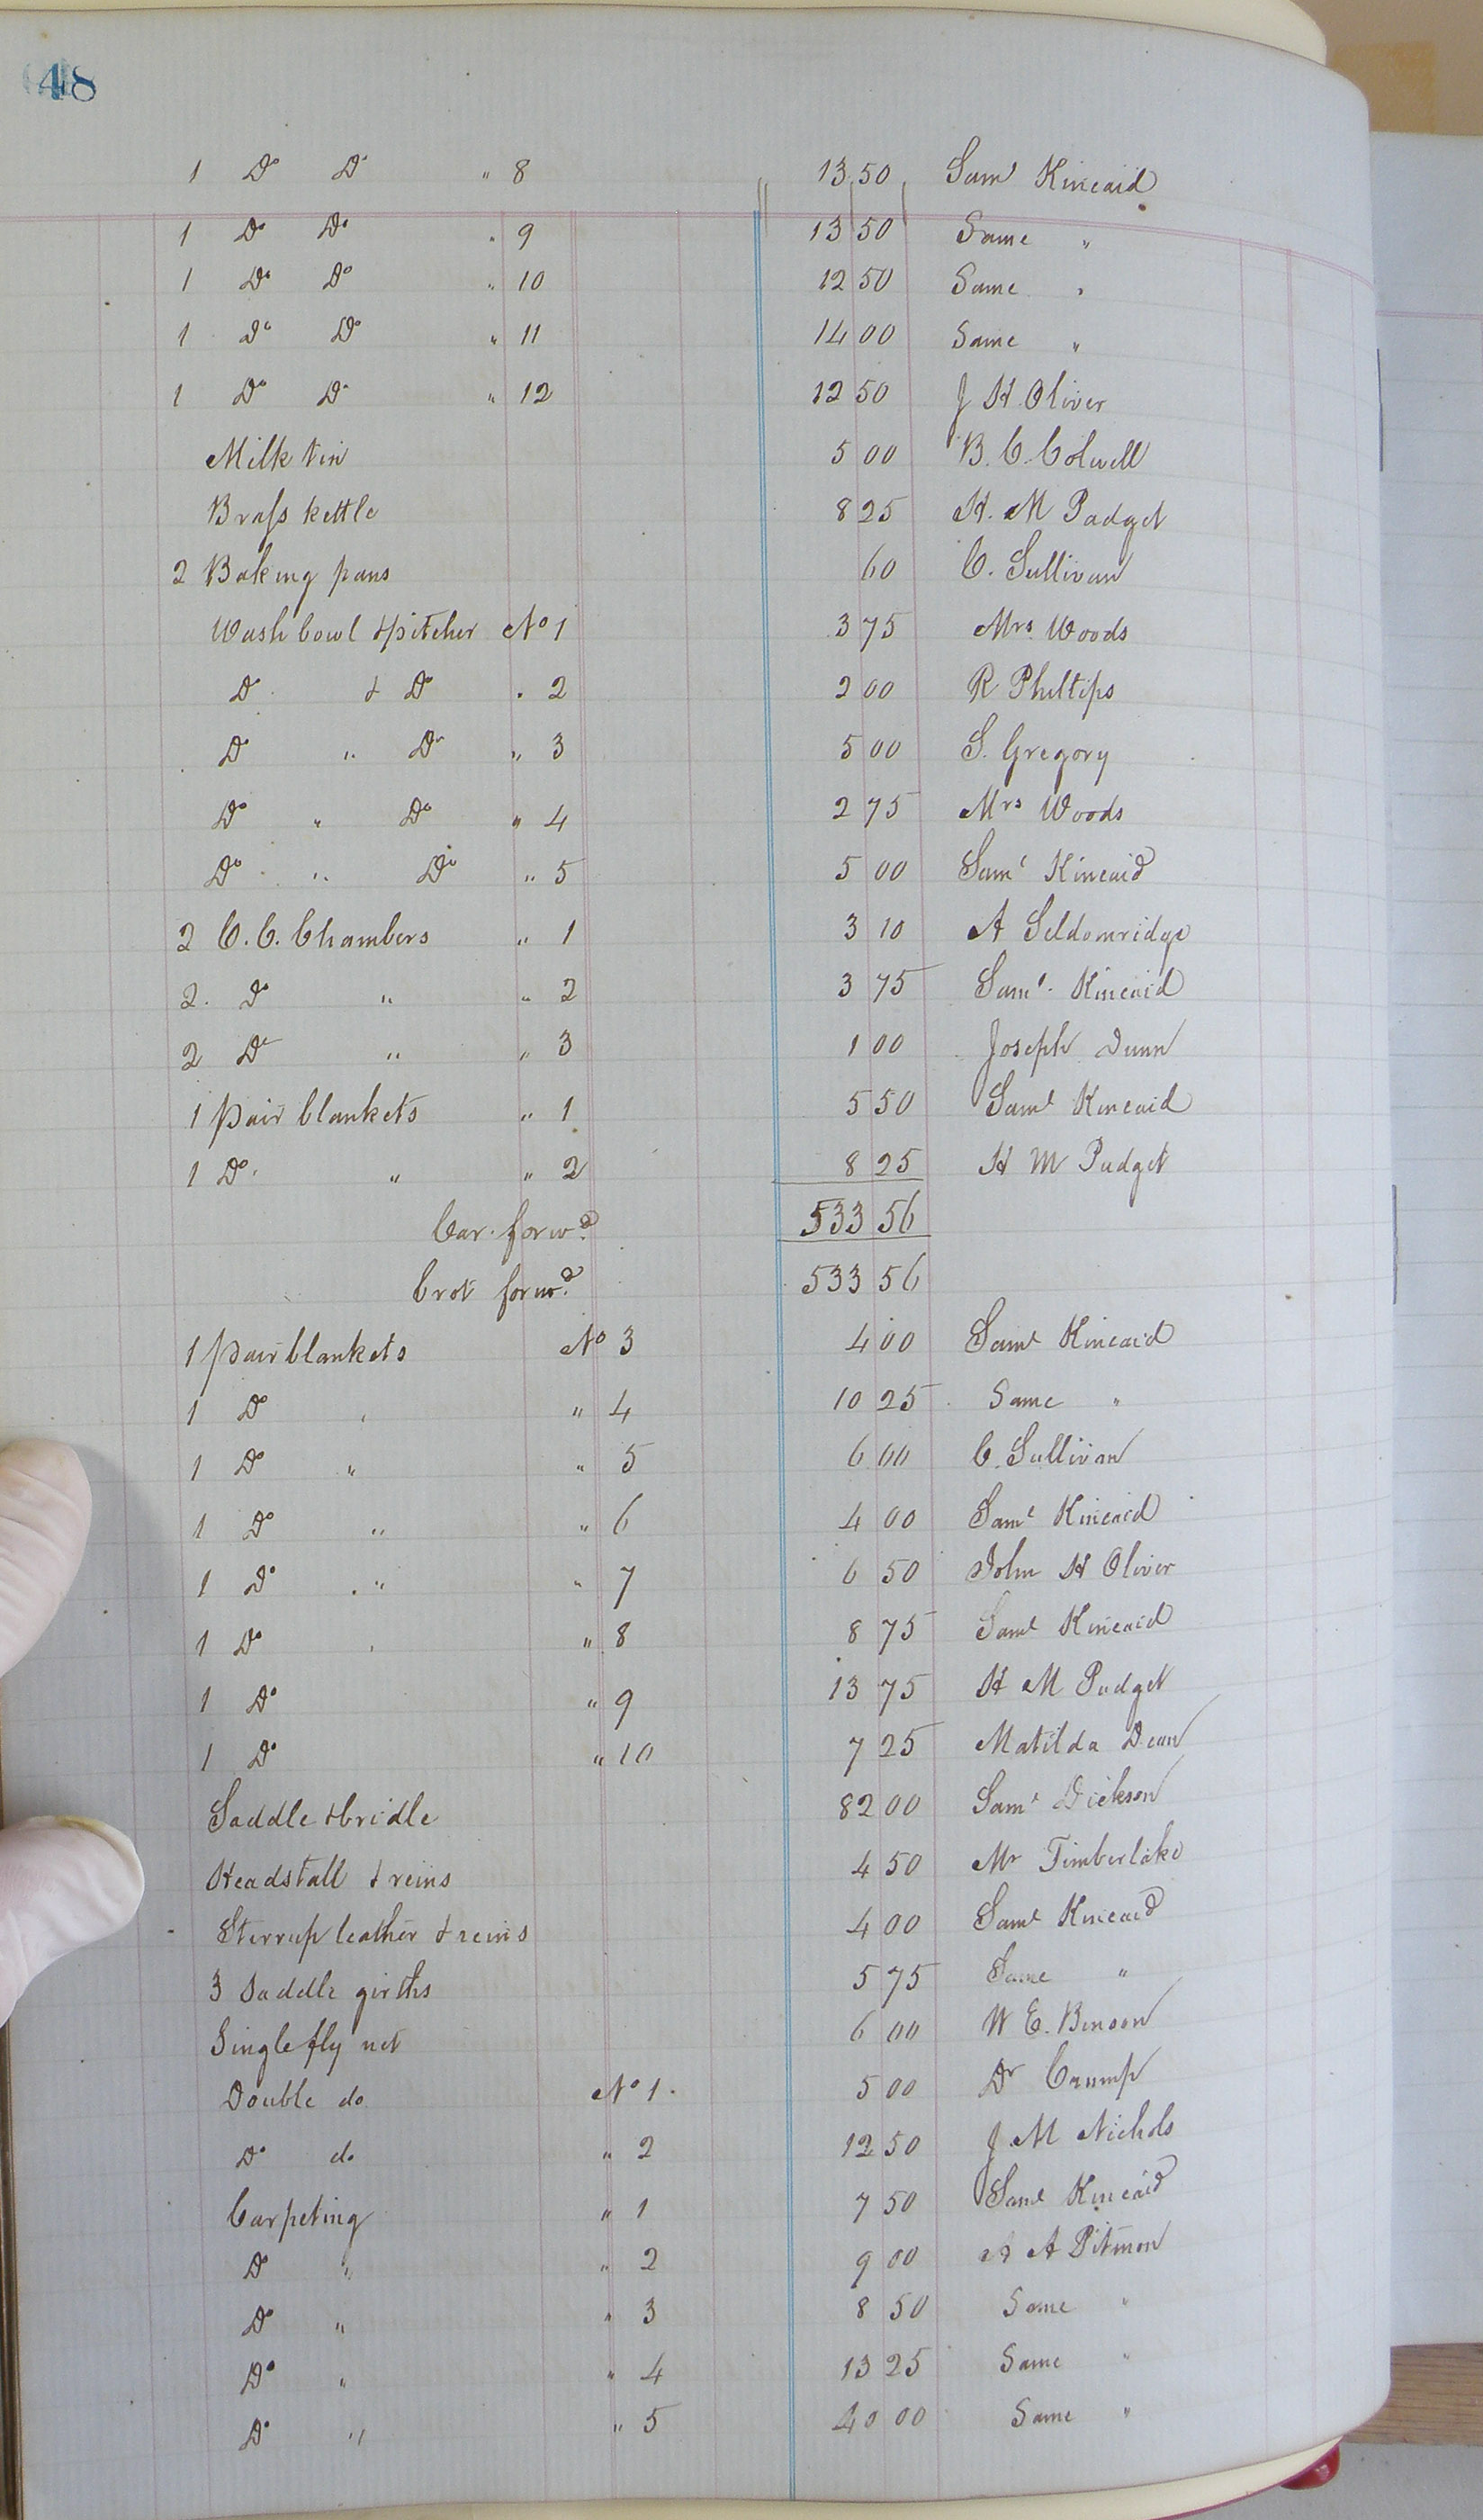 48
1 Do Do " 8 13 50 Saml Kincaid
1 Do Do " 9 13 50 Same "
1 Do Do " 10 12 50 Same "
1 Do Do " 11 14 00 Same "
1 Do Do " 12 12 50 J H Oliver
Milk tin 5 00 B. C. Colwell
Brass kettle 8 25 H. M Padget
2 Baking pans 60 C. Sullivan
Wash bowl & pitcher No 1 3 75 Mrs Woods
Do & Do " 2 2 00 R Phillips
Do " Do " 3 5 00 S. Gregory
Do " Do " 4 2 75 Mrs Woods
Do " Do " 5 5 00 Saml Kincaid
2 C. C. Chambers " 1 3 10 A Seldomridge
2 Do " " 2 3 75 Saml Kincaid
2 Do " " 3 1 00 Joseph Dunn
1 Pair blankets " 1 5 50 Saml Kincaid
1 Do " " 2 8 25 H M Padget
Car. forwd 533 56
brot forwd 533 56
1 Pair blankets No 3 4 00 Saml Kincaid
1 Do " " 4 10 25 Same "
1 Do " " 5 6 00 C. Sullivan
1 Do " " 6 4 00 Saml Kincaid
1 Do " " 7 6 50 John H Oliver
1 Do " " 8 8 75 Saml Kincaid
1 Do " 9 13 75 H M Padget
1 Do " 10 7 25 Matilda Dean
Saddle & bridle 82 00 Saml Dickson
Headstall & reins 4 50 Mr Timberlake
Sterrup leather & reins 4 00 Saml Kincaid
3 Saddle girths 5 75 Same "
Single fly net 6 00 W E. Benson
Double do No 1. 5 00 Dr Crump
Do do " 2 12 50 J. M Nichols
Carpeting " 1 7 50 Saml Kincaid
Do " " 2 9 00 A Pitman
Do " " 3 8 50 Same "
Do " " 4 13 25 Same "
Do " " 5 40 00 Same "